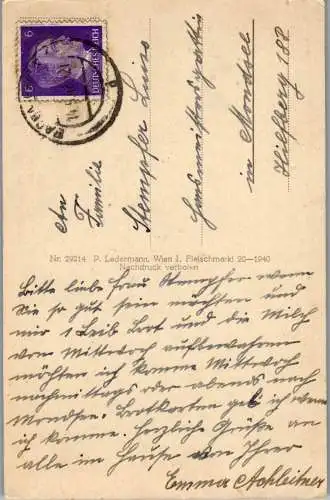 6
DEUTSCHES REICH
6
An
Familie
Stempfer Luis
in Mondsee
Hilfberg 188
Nr. 29214 P. Ledermann, Wien I, Fleischmarkt 20—1940
Nachdruck verboten
Bitte liebe Frau Stempfer wenn
Sie so gut sein möchten und
mir 1 Leib Brot und die Milch
von Mittwoch aufbewahren
möchten ich komme Mittwoch
nachmittags oder abends nach
Mondsee. Brotkarten geb ich wenn
ich komme. Herzliche Grüße an
alle im Hause von Ihrer
Emma Achleitner